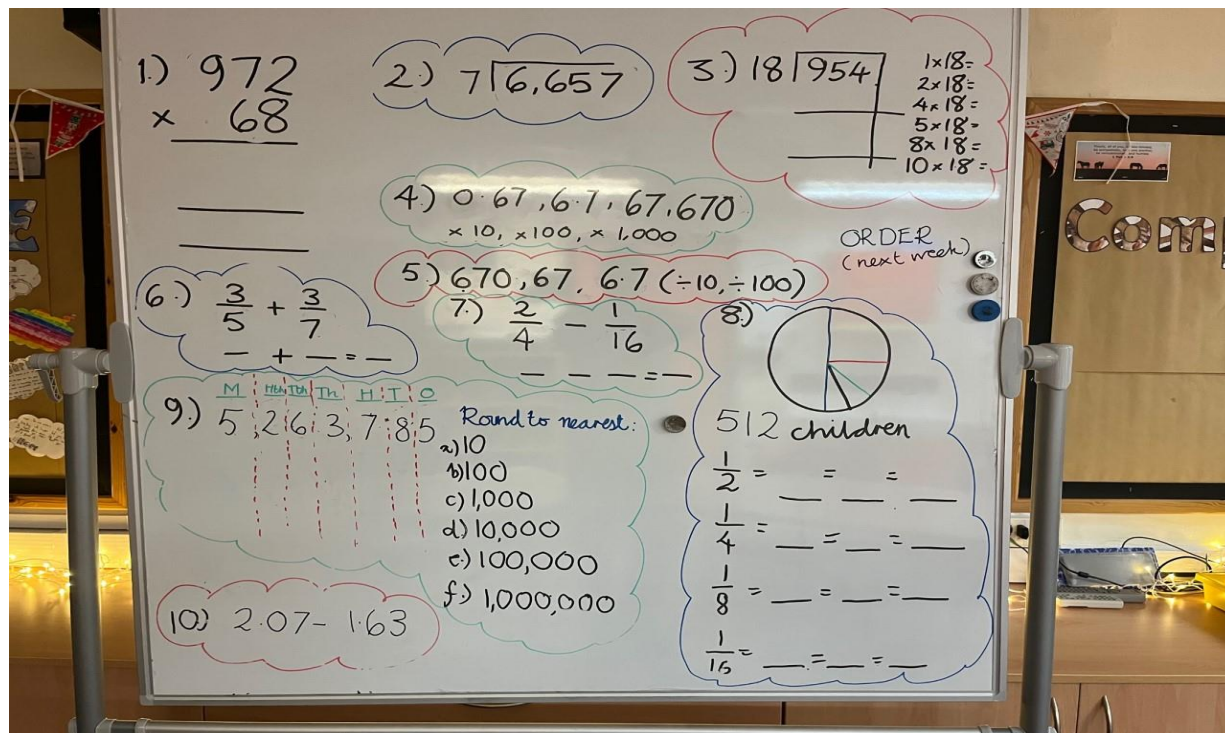 1.) 972
× 68
2.) 7 6,657
3.) 18 954
1×18=
2×18=
4×18=
5×18=
8×18=
10×18=
4.) 0.67, 6.7, 67, 670
× 10, ×100, × 1,000
5.) 670, 67, 6.7 (÷10, ÷100)
ORDER
(next week)
6.) 3/5 + 3/7
_ + _ = _
7.) 2/4 - 1/16
_ _ _ = _
8.)
512 children
1/2 = _ = _ = _
1/4 = _ = _ = _
1/8 = _ = _ = _
1/16 = _ = _ = _
9.) M Hth Tth Th H T O
5,263,785
Round to nearest:
a) 10
b) 100
c) 1,000
d) 10,000
e.) 100,000
f.) 1,000,000
10.) 2.07- 1.63
Com